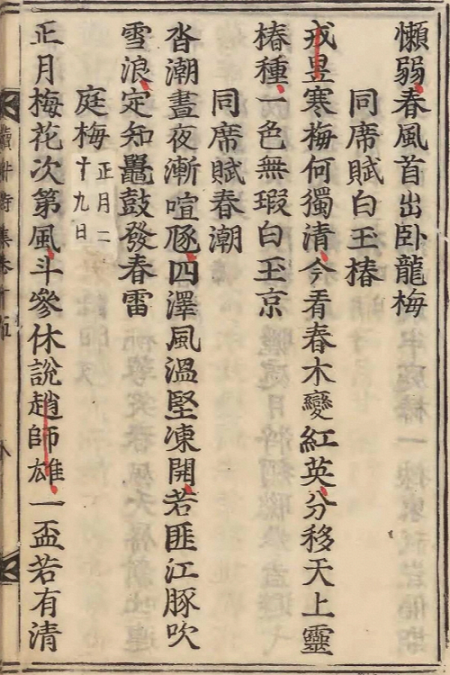 懶弱春風首出卧龍梅
同席賦白玉椿
戎昱寒梅何獨清今看春木變紅英分移天上靈
椿種一色無瑕白玉京
同席賦春潮
沓潮晝夜漸喧豗四澤風溫堅凍開若匪江豚吹
雪浪定知鼉鼓發春雷
庭梅正月二十九日
正月梅花次第風斗參休說趙師雄一盃若有清